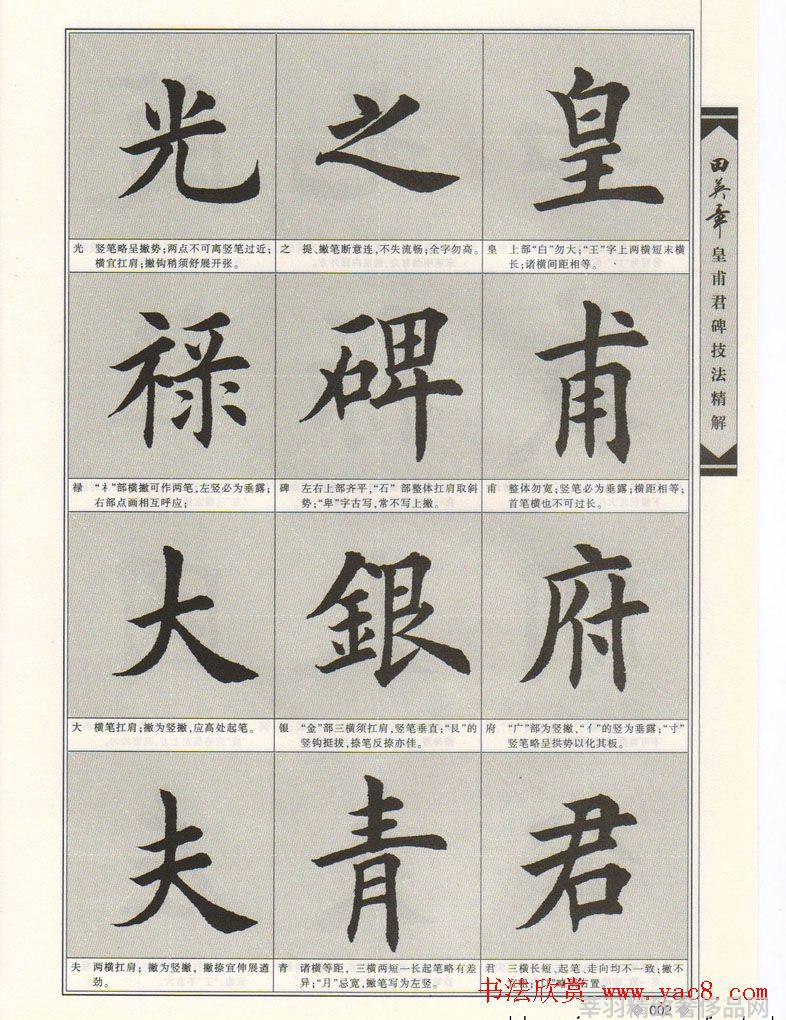 田英章
皇甫君碑技法精解
皇
皇 上部“白”勿大；“王”字上两横短末横
长；诸横间距相等。
之
之 提、撇笔断意连，不失流畅；全字勿高。
光
光 竖笔略呈撇势；两点不可离竖笔过近；
横宜扛肩；撇钩稍须舒展开张。
甫
甫 整体勿宽；竖笔必为垂露；横距相等；
首笔横也不可过长。
碑
碑 左右上部齐平，“石”部整体扛肩取斜
势；“卑”字古写，常不写上撇。
禄
禄 “礻”部横撇可作两笔，左竖必为垂露；
右部点画相互呼应；
府
府 “广”部为竖撇，“亻”的竖为垂露；“寸”
竖笔略呈拱势以化其板。
銀
银 “金”部三横须扛肩，竖笔垂直；“艮”的
竖钩挺拔，捺笔反捺亦佳。
大
大 横笔扛肩；撇为竖撇，应高处起笔。
君
君 三横长短、起笔、走向均不一致；撇不
青
青 诸横等距，三横两短一长起笔略有差
异；“月”忌宽，撇笔写为左竖。
夫
夫 两横扛肩；撇为竖撇，撇捺宜伸展遒
劲。
书法欣赏 www.yac8.com
002